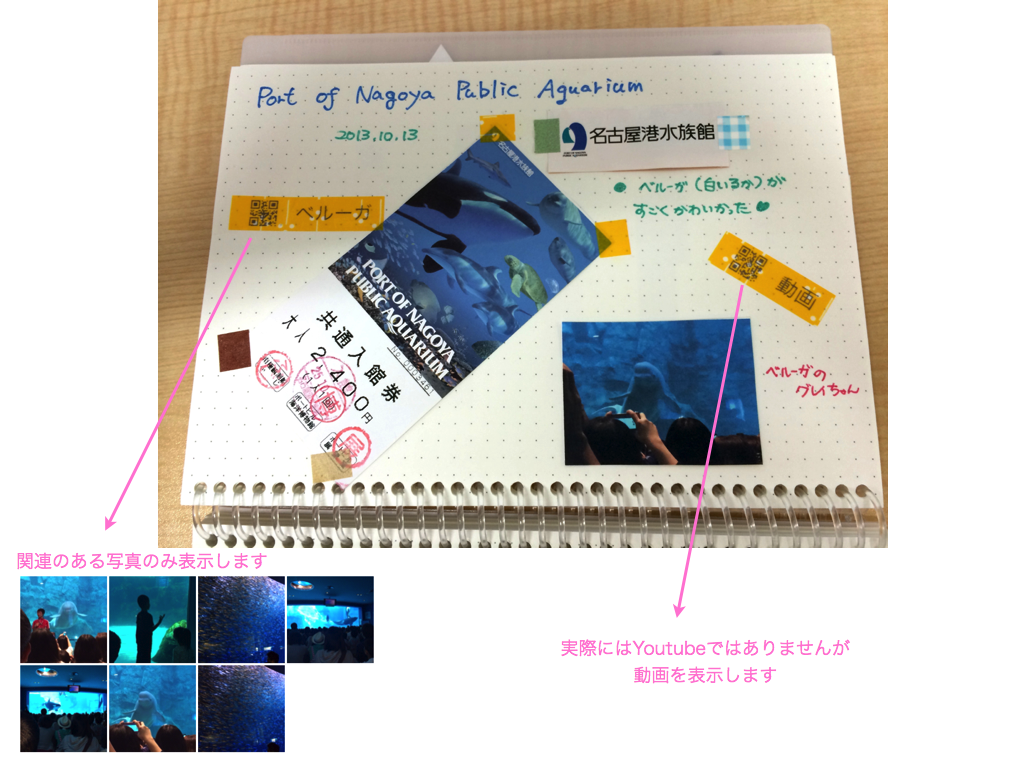 Port of Nagoya Public Aquarium
2013.10.13
名古屋港水族館
名古屋港水族館
ベルーガ(白いるか)が
すごくかわいかった
ベルーガ
動画
PORT OF NAGOYA
PUBLIC AQUARIUM
共通入館券
大人 2400円
ベルーガの
グレイちゃん
関連のある写真のみ表示します
実際にはYoutubeではありませんが
動画を表示します